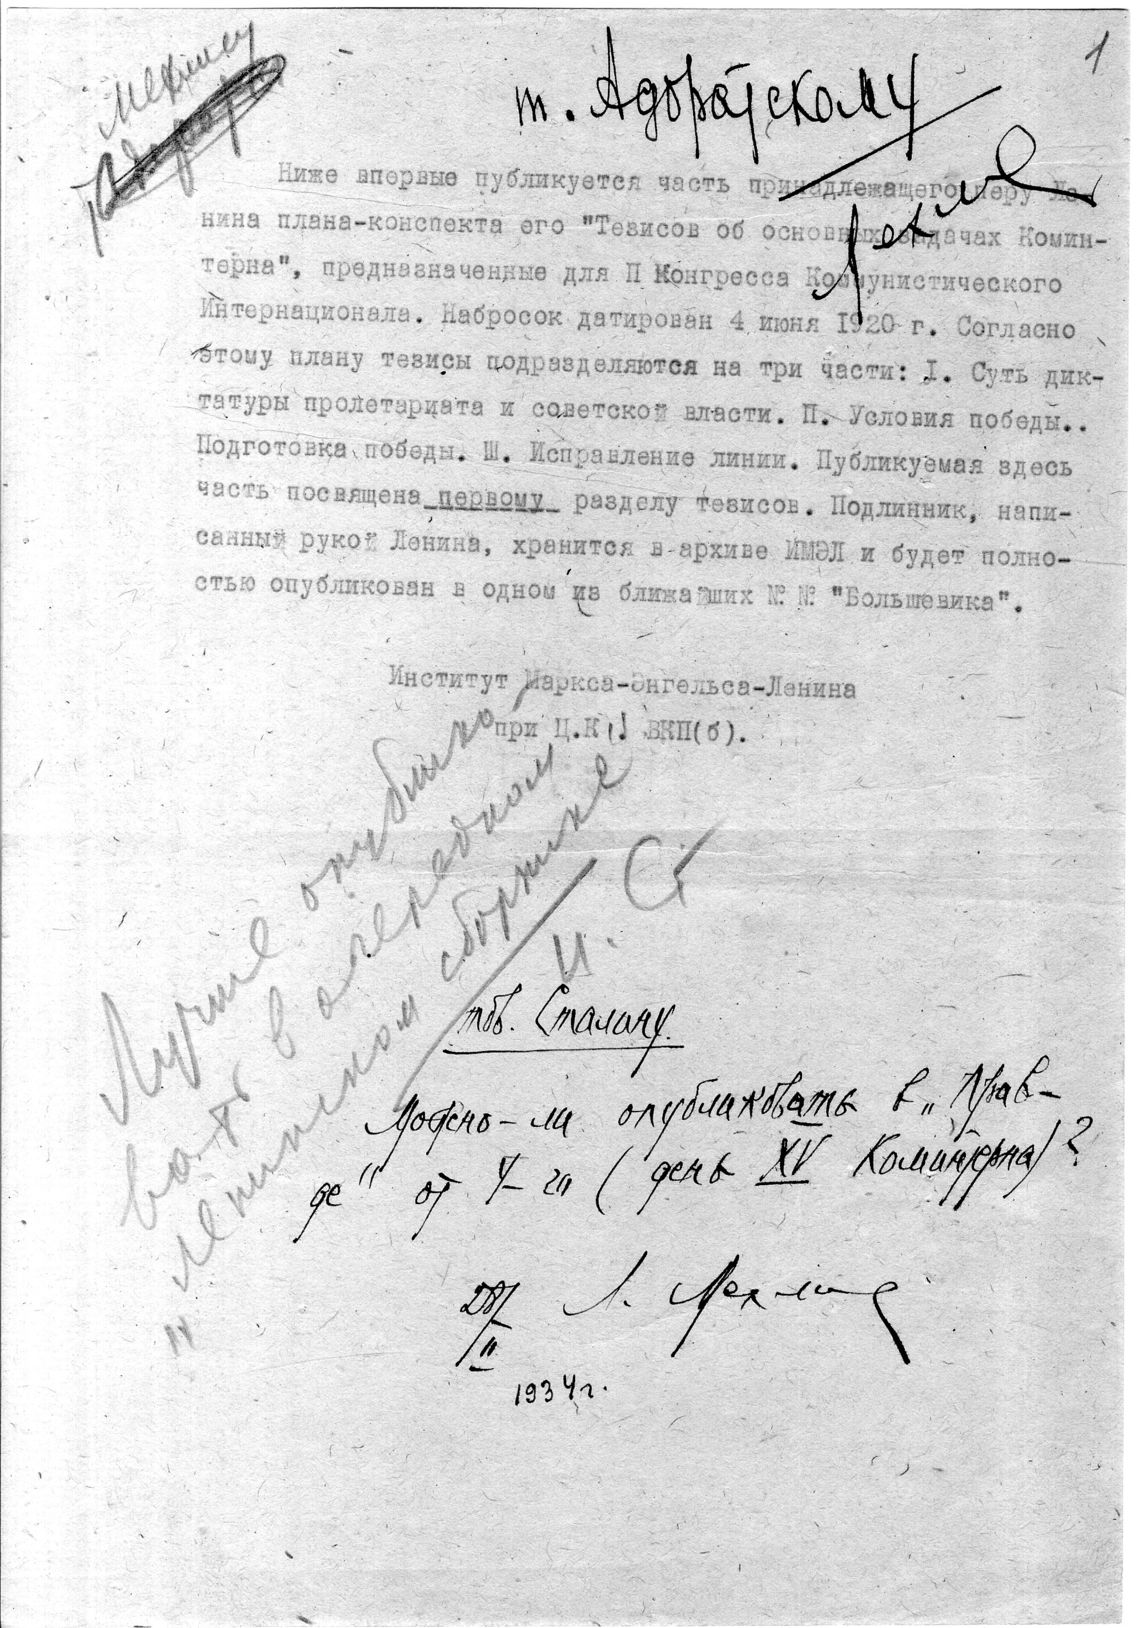 1
Мехлису
т. Адоратскому
Мехлис
Ниже впервые публикуется часть принадлежащего перу Ле-
нина плана-конспекта его "Тезисов об основных задачах Комин-
терна", предназначенные для П Конгресса Коммунистического
Интернационала. Набросок датирован 4 июня 1920 г. Согласно
этому плану тезисы подразделяются на три части: I. Суть дик-
татуры пролетариата и советской власти. П. Условия победы..
Подготовка победы. Ш. Исправление линии. Публикуемая здесь
часть посвящена первому разделу тезисов. Подлинник, напи-
санный рукой Ленина, хранится в архиве ИМЭЛ и будет полно-
стью опубликован в одном из ближайших №№ "Большевика".
Институт Маркса-Энгельса-Ленина
при Ц.К. ВКП(б).
Лучше опублико-
вать в очередном
"ленинском сборнике
И. Ст
тов. Сталину.
Можно-ли опубликовать в „Прав-
де" от 4-го (день XV Коминтерна)?
28/II
Л. Мехлис
1934 г.